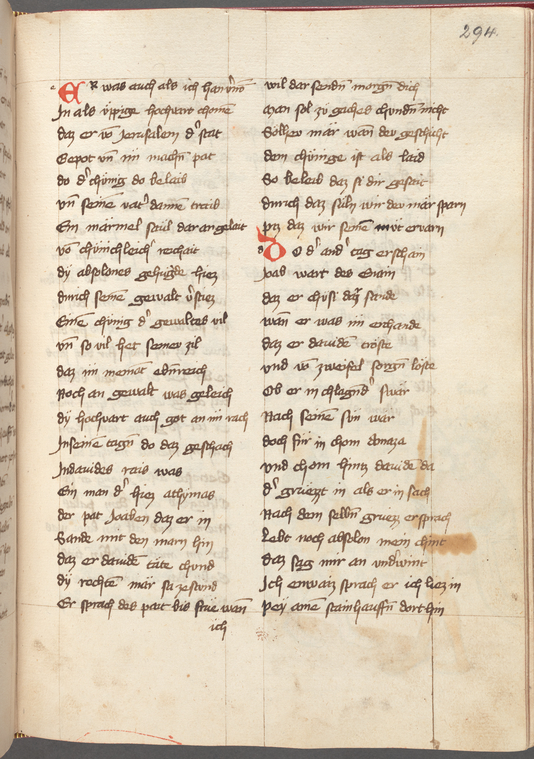 294
ER was auch als ich han v̄nō
In als üppige hochvart chomē
daz er vō Jerusalem d' stat
Gepot vn̄ im machn̄ pat
do d' chünig do belaib
vn̄ seine vat' danne traib
Ein märmel säul dar angelait
vō chünichleich' reichait
dy absolones gehügde hiez
durich seine gewalt v'stiez
Eine chünig d' gewaltes vil
vn̄ so vil het seiner zil
daz im nieman ebnreich
Noch an gewalt was geleich
dy hochvart auch got an im rach
In seine tagn̄ do daz geschach
In davides rais was
Ein man d' hiez athymas
der pat Joaben daz er in
Sande mit den märn hin
daz er davide täte chund
dy rechtē mär sa ze stund
Er sprach des part bis frue wan̄
ich
wil dar sendn̄ morgn̄ dich
man sol zu gaches chundn̄ nicht
Solhew mär wan̄ dew geschicht
dem chünige ist als laid
So beleib daz si dir gesait
durich daz süln wir dew mär sparn
pis daz wir seine mut ervarn
DO d' and' tag erschain
Joab wart des enain
daz er chusi dar sande
wan̄ er was im erchande
daz er davide tröste
vnd vō zweifel sorgn̄ löste
Ob er in chlagnd' swär
Nach seine sün wär
doch für in chom
vnd chom hintz davide da
d' gruezzt in als er in sach
Nach dem selbn̄ gruez er sprach
Lebt noch absolon mein chint
daz sag mir an vnd'wint
Ich enwaiz sprach er ich liez in
Pey aine stainhauffn̄ dort hin